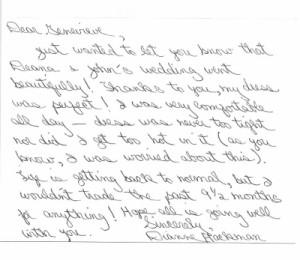 Dear Genevieve,
Just wanted to let you know that
Deana & John's wedding went
beautifully! Thanks to you, my dress
was perfect! I was very comfortable
all day — dress was never too tight
nor did I get too hot in it (as you
know, I was worried about this).
Life is getting back to normal, but I
wouldn't trade the past 9½ months
for anything! Hope all is going well
with you.
Sincerely,
Dianne Hackman